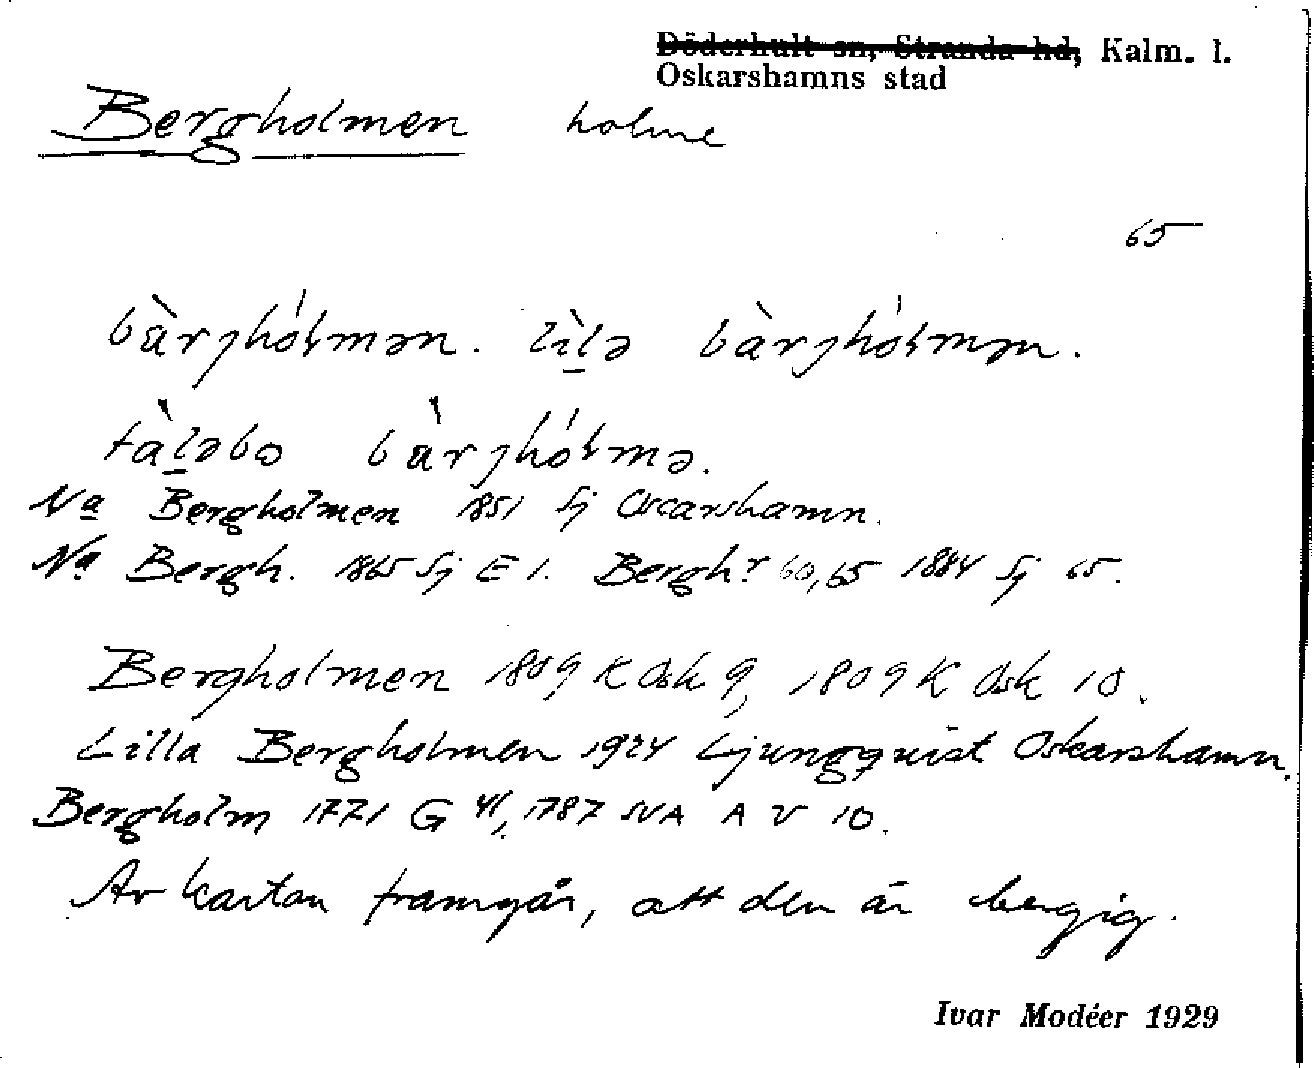 Döderhult sn, Stranda hd, Kalm. l.
Oskarshamns stad
Bergholmen holme
65
bàrjhólmən. lìlə bàrjhólmən.
tàləbə bàrjhólmə.
Na Bergholmen 1851 Sj Oscarshamn.
Na Bergh. 1865 Sj E 1. Berghr 60,65 1884 Sj 65.
Bergholmen 1809 K Osk 9, 1809 K Osk 10.
Lilla Bergholmen 1924 Ljungquist Oskarshamn.
Bergholm 1771 G 41, 1787 SVA A V 10.
Av kartan framgår, att den är bergig.
Ivar Modéer 1929